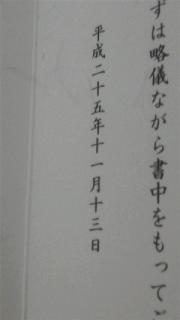 ずは略儀ながら書中をもってご
平成二十五年十一月十三日